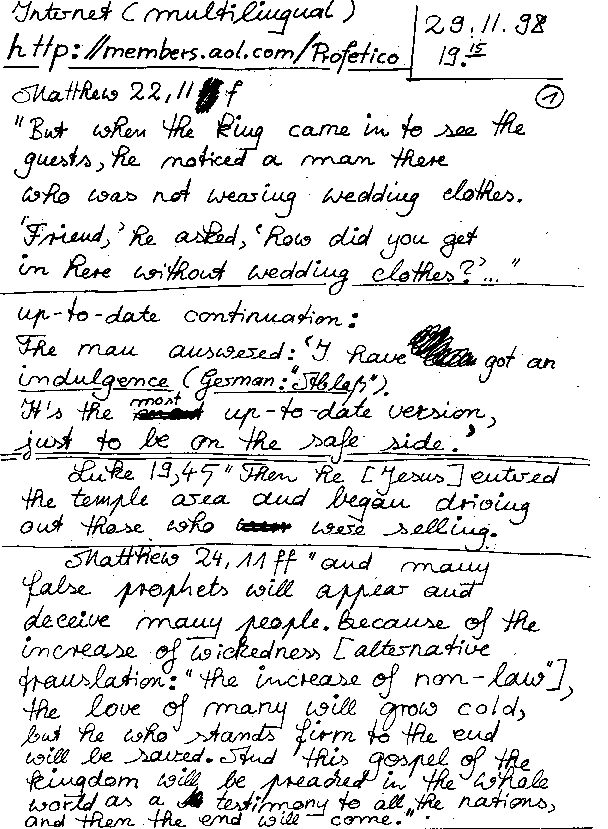 Internet (multilingual)
29.11.98
http://members.aol.com/Profetico
19.15
Matthew 22,11 f
1
"But when the king came in to see the
guests, he noticed a man there
who was not wearing wedding clothes.
'Friend,' he asked, 'how did you get
in here without wedding clothes?'..."
up-to-date continuation:
The man answered: 'I have got an
indulgence (German: "Ablaß").
It's the most up-to-date version,
just to be on the safe side.'
Luke 19,45 "Then he [Jesus] entered
the temple area and began driving
out those who were selling.
Matthew 24,11 ff "and many
false prophets will appear and
deceive many people. Because of the
increase of wickedness [alternative
translation: "the increase of non-law"],
the love of many will grow cold,
but he who stands firm to the end
will be saved. And this gospel of the
kingdom will be preached in the whole
world as a testimony to all the nations,
and then the end will come."